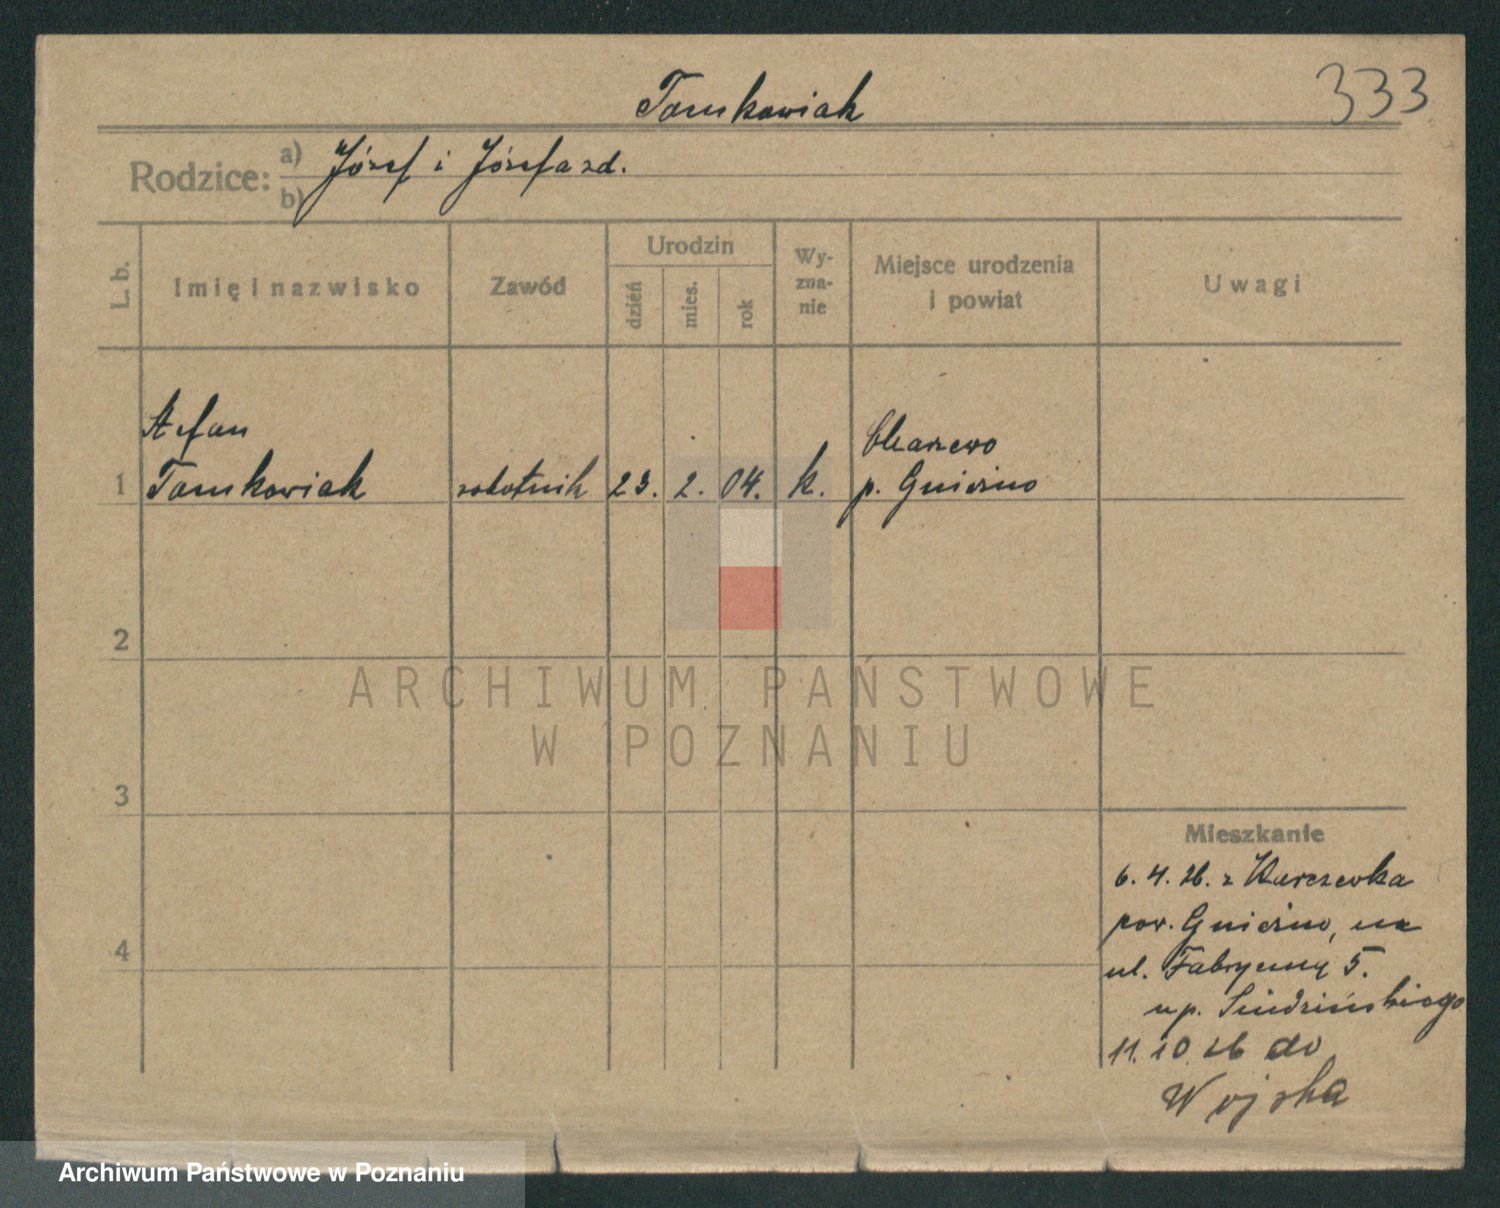 Tomkowiak
333
Rodzice: a) Józef i Józefa zd.
b)
L. b.
Imię i nazwisko
Zawód
Urodzin
dzień
mies.
rok
Wy-
zna-
nie
Miejsce urodzenia
i powiat
Uwagi
Stefan
1 Tomkowiak robotnik 23. 2. 04. k.
p. Gniezno
2
3
4
Mieszkanie
6. 4. 26. z Karczewka
pow. Gniezno, na
ul. Fabryczną 5.
u p.
11. 10. 26 do
Wojska
ARCHIWUM PAŃSTWOWE
W POZNANIU
Archiwum Państwowe w Poznaniu